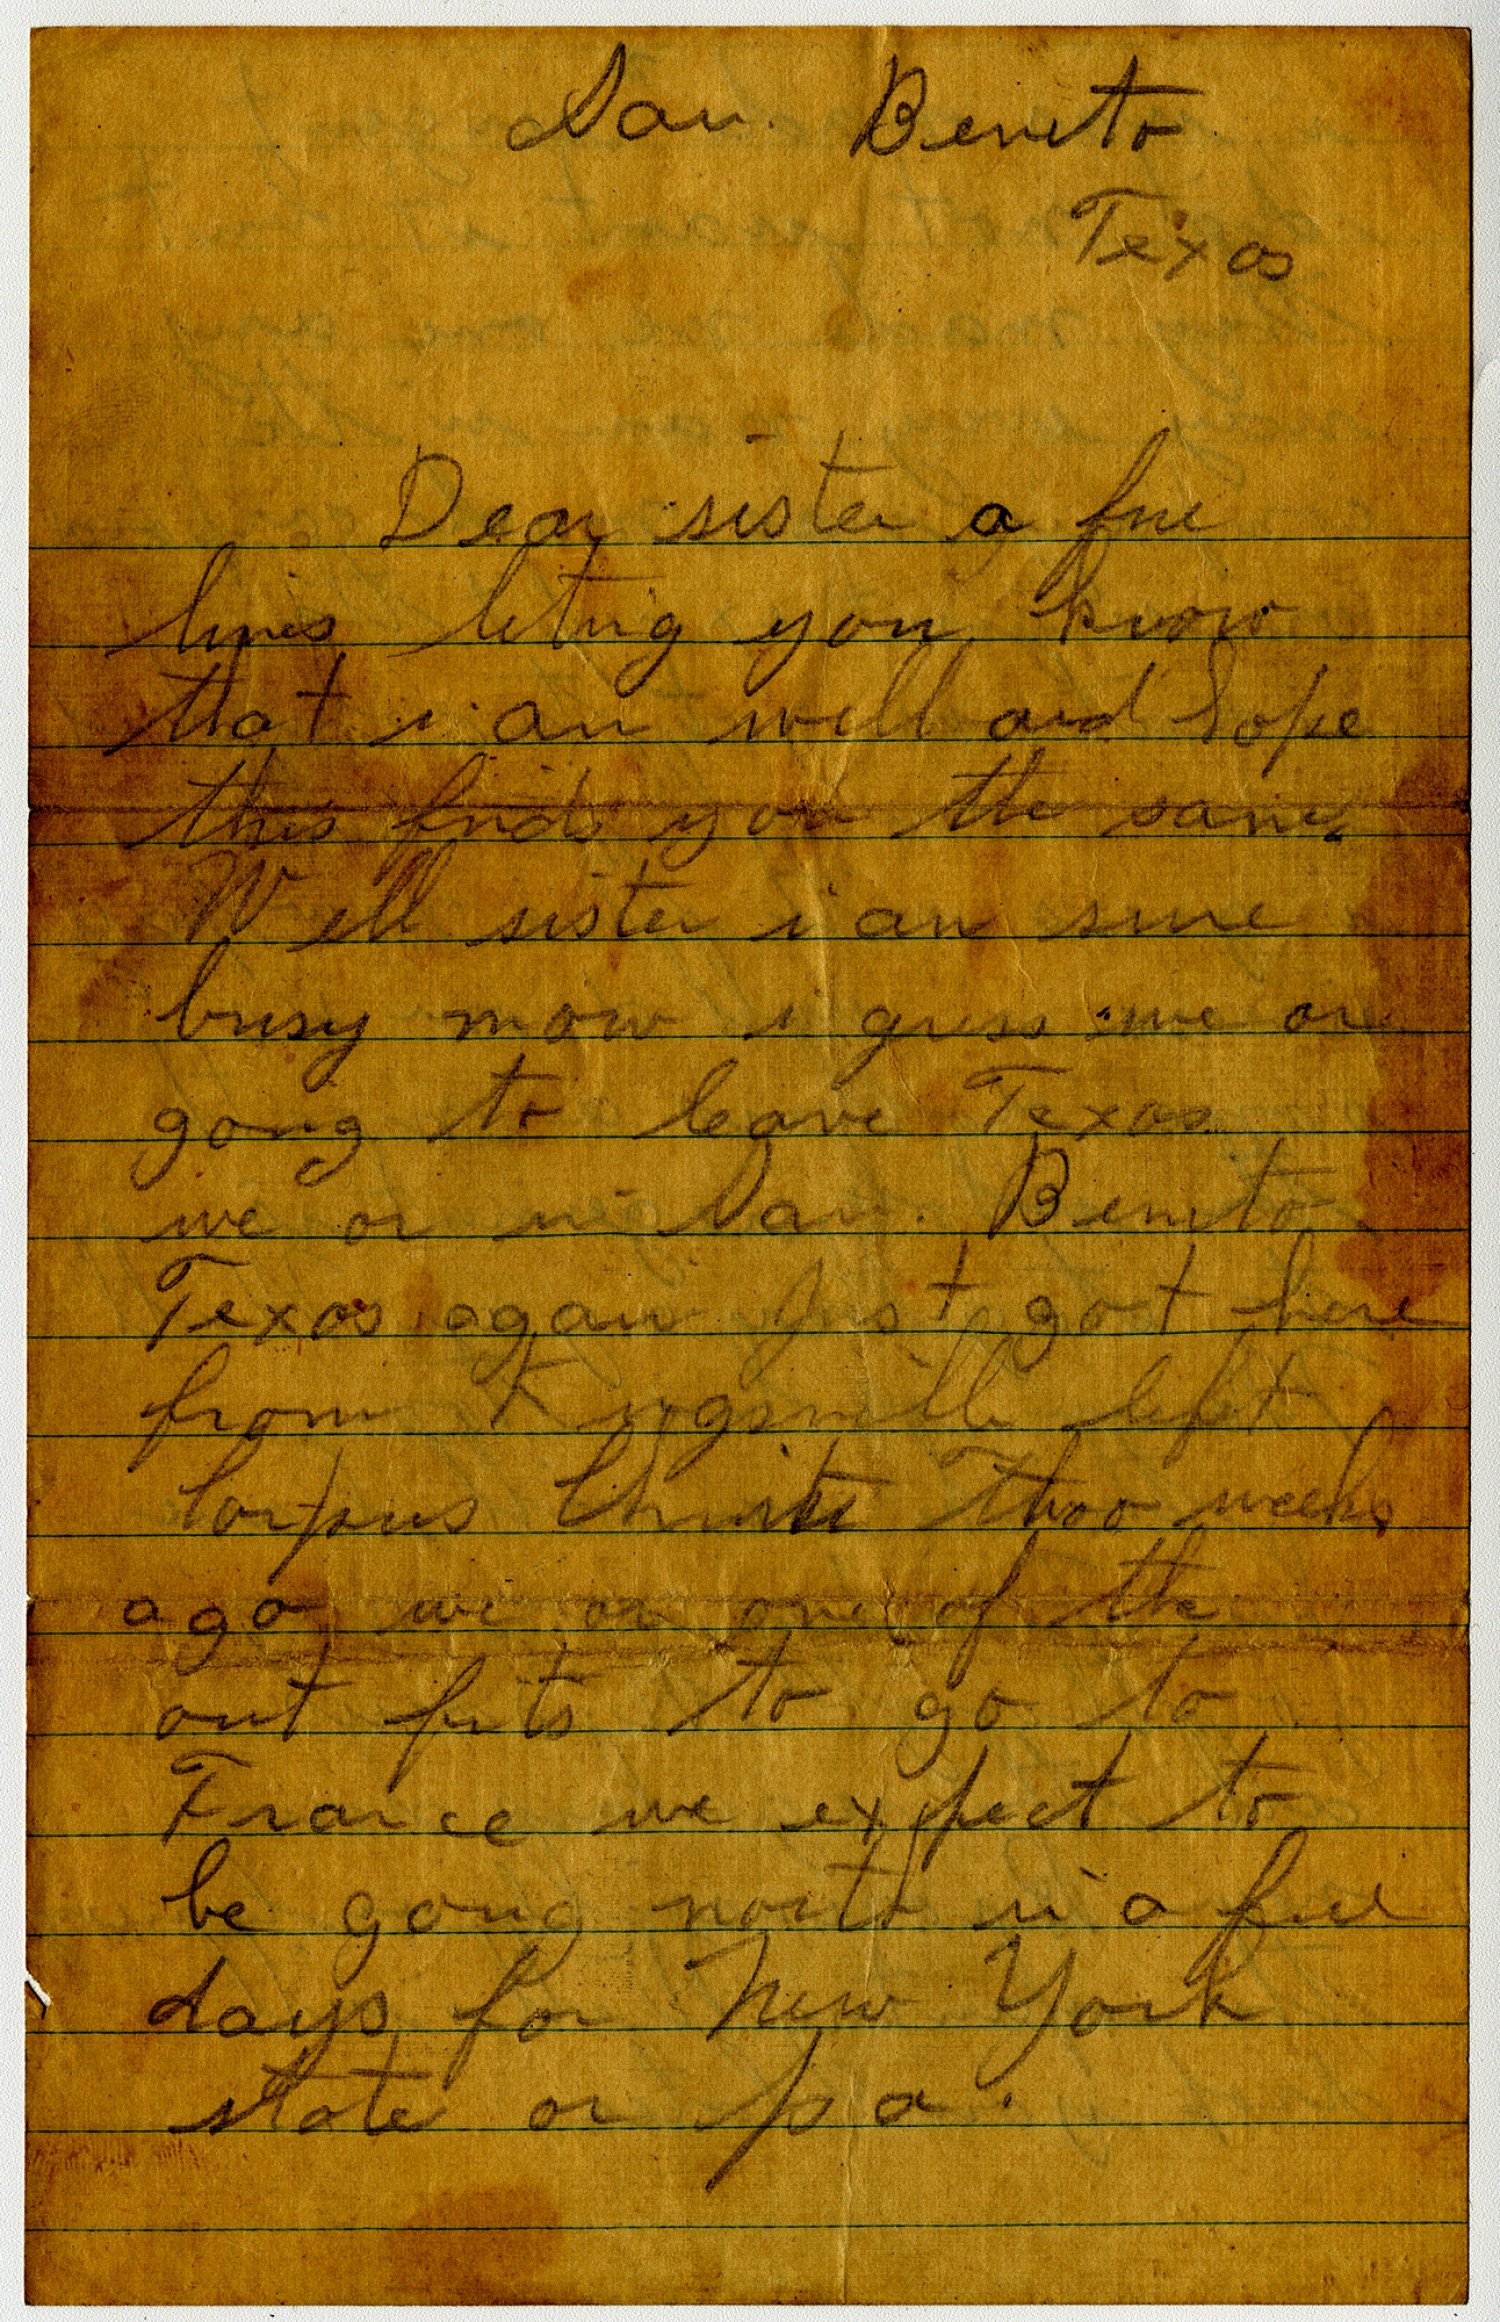 San. Benito
Texas
Dear sister a fue
lines leting you know
that i am well and hope
this finds you the same
Well sister i am sure
busy now i guess we are
going to leave Texas
we or in San. Benito
Texas again just got here
from Kingsville left
Corpus Christi Thoo weeks
ago we or one of the
out fits to go to
France we expect to
be going north in a fue
days for New York
state or pa.